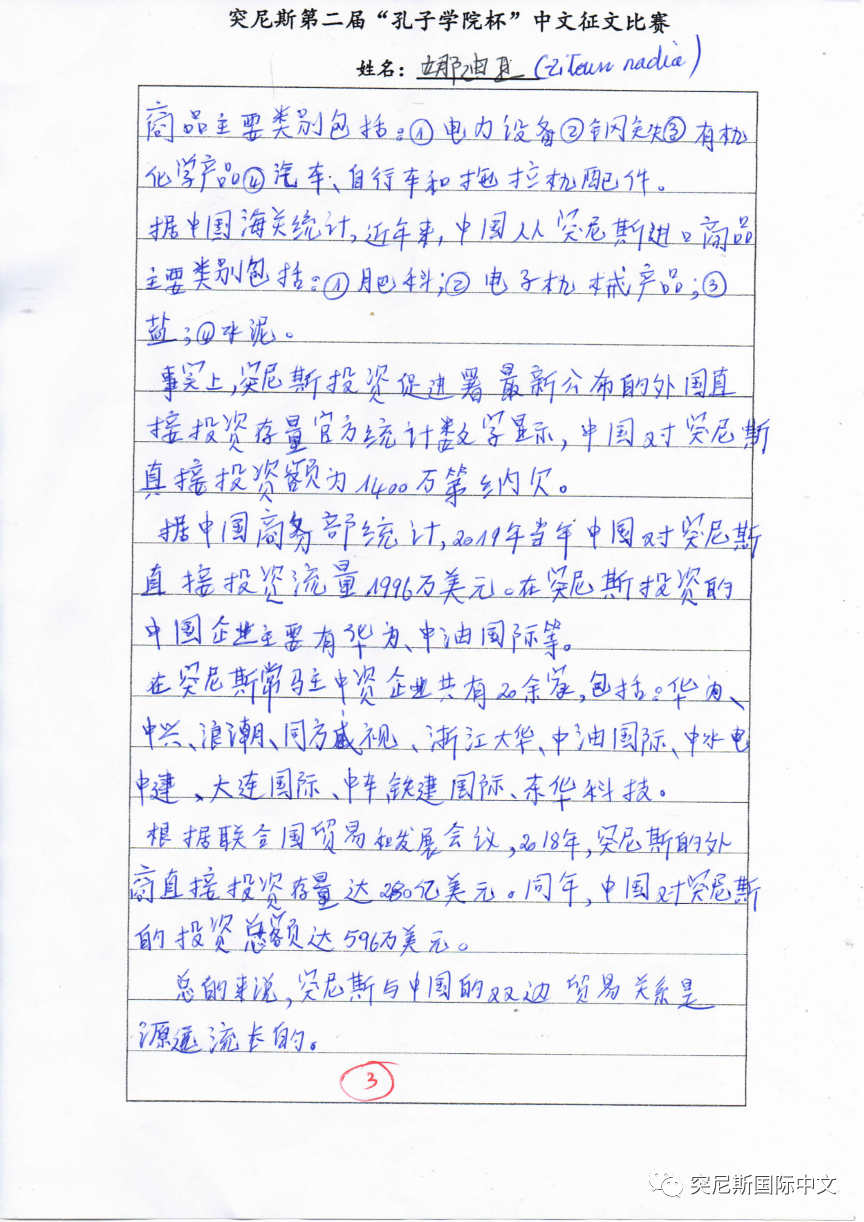 突尼斯第二届“孔子学院杯”中文征文比赛
姓名：娜迪亚 (zitoun nadia)
商品主要类别包括：①电力设备②钢铁③有机
化学产品④汽车、自行车和拖拉机配件。
据中国海关统计，近年来，中国从突尼斯进口商品
主要类别包括：①肥料；②电子机械产品；③
盐；④水泥。
事实上，突尼斯投资促进署最新公布的外国直
接投资存量官方统计数字显示，中国对突尼斯
直接投资额为1400万第纳尔。
据中国商务部统计，2019年当年中国对突尼斯
直接投资流量1996万美元。在突尼斯投资的
中国企业主要有华为、中油国际等。
在突尼斯常驻中资企业共有20余家，包括：华为、
中兴、浪潮、同方威视、浙江大华、中油国际、中水电
中建、大连国际、中车、铁建国际、东华科技。
根据联合国贸易和发展会议，2018年，突尼斯的外
商直接投资存量达280亿美元。同年，中国对突尼斯
的投资总额达596万美元。
总的来说，突尼斯与中国的双边贸易关系是
源远流长的。
3
突尼斯国际中文